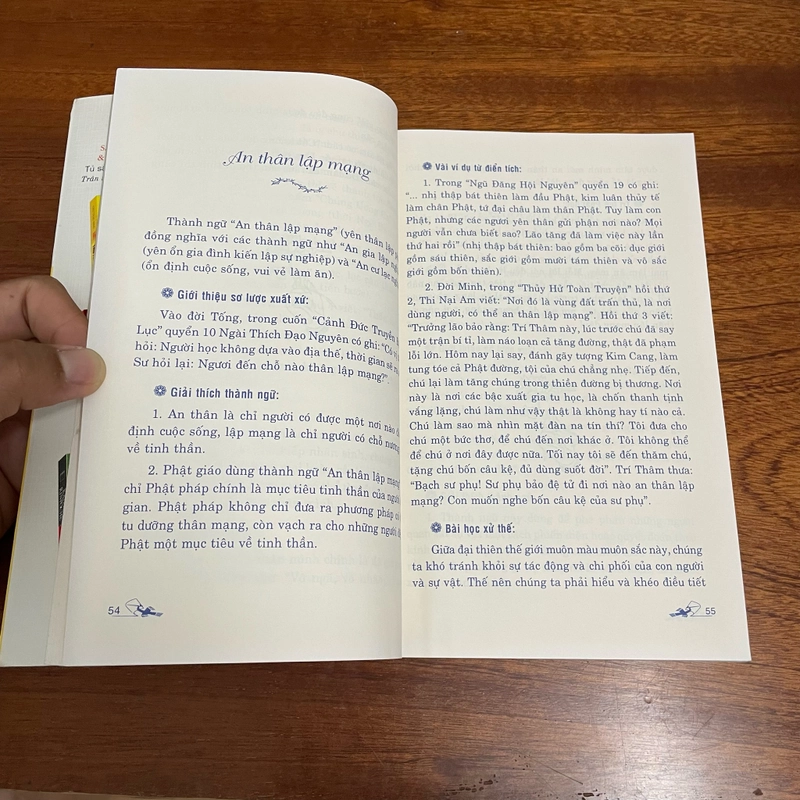 &
Tủ sá
Trần
An thân lập mạng
Thành ngữ “An thân lập mạng” (yên thân lập
đồng nghĩa với các thành ngữ như “An gia lập
(yên ổn gia đình kiến lập sự nghiệp) và “An cư lạc
(ổn định cuộc sống, vui vẻ làm ăn).
Giới thiệu sơ lược xuất xứ:
Vào đời Tống, trong cuốn “Cảnh Đức Truyền
Lục” quyển 10 Ngài Thích Đạo Nguyên có ghi: “Có vị
hỏi: Người học không dựa vào địa thế, thời gian sẽ
Sư hỏi lại: Ngươi đến chỗ nào thân lập mạng?”.
Giải thích thành ngữ:
1. An thân là chỉ người có được một nơi nào
định cuộc sống, lập mạng là chỉ người có chỗ
về tinh thần.
2. Phật giáo dùng thành ngữ “An thân lập mạng”
chỉ Phật pháp chính là mục tiêu tinh thần của người
gian. Phật pháp không chỉ đưa ra phương pháp
tu dưỡng thân mạng, còn vạch ra cho những người
Phật một mục tiêu về tinh thần.
54
Vài ví dụ từ điển tích:
1. Trong “Ngũ Đăng Hội Nguyên” quyển 19 có ghi:
“... nhị thập bát thiên làm đầu Phật, kim luân thủy tế
làm chân Phật, tứ đại châu làm thân Phật. Tuy làm con
Phật, nhưng các ngươi yên thân gửi phận nơi nào? Mọi
người vẫn chưa biết sao? Lão tăng đã làm việc này lần
thứ hai rồi” (nhị thập bát thiên: bao gồm ba cõi: dục giới
gồm sáu thiên, sắc giới gồm mười tám thiên và vô sắc
giới gồm bốn thiên).
2. Đời Minh, trong “Thủy Hử Toàn Truyện” hồi thứ
2, Thi Nại Am viết: “Nơi đó là vùng đất trấn thủ, là nơi
dùng người, có thể an thân lập mạng”. Hồi thứ 3 viết:
“Trưởng lão bảo rằng: Trí Thâm này, lúc trước chú đã say
một trận bí tỉ, làm náo loạn cả tăng đường, thật đã phạm
lỗi lớn. Hôm nay lại say, đánh gãy tượng Kim Cang, làm
tung tóe cả Phật đường, tội của chú chẳng nhẹ. Tiếp đến,
chú lại làm tăng chúng trong thiền đường bị thương. Nơi
này là nơi các bậc xuất gia tu học, là chốn thanh tịnh
vắng lặng, chú làm như vậy thật là không hay tí nào cả.
Chú làm sao mà nhìn mặt đàn na tín thí? Tôi đưa cho
chú một bức thơ, để chú đến nơi khác ở. Tôi không thể
để chú ở nơi đây được nữa. Tối nay tôi sẽ đến thăm chú,
tặng chú bốn câu kệ, đủ dùng suốt đời”. Trí Thâm thưa:
“Bạch sư phụ! Sư phụ bảo đệ tử đi nơi nào an thân lập
mạng? Con muốn nghe bốn câu kệ của sư phụ”.
Bài học xử thế:
Giữa đại thiên thế giới muôn màu muôn sắc này, chúng
ta khó tránh khỏi sự tác động và chi phối của con người
và sự vật. Thế nên chúng ta phải hiểu và khéo điều tiết
55